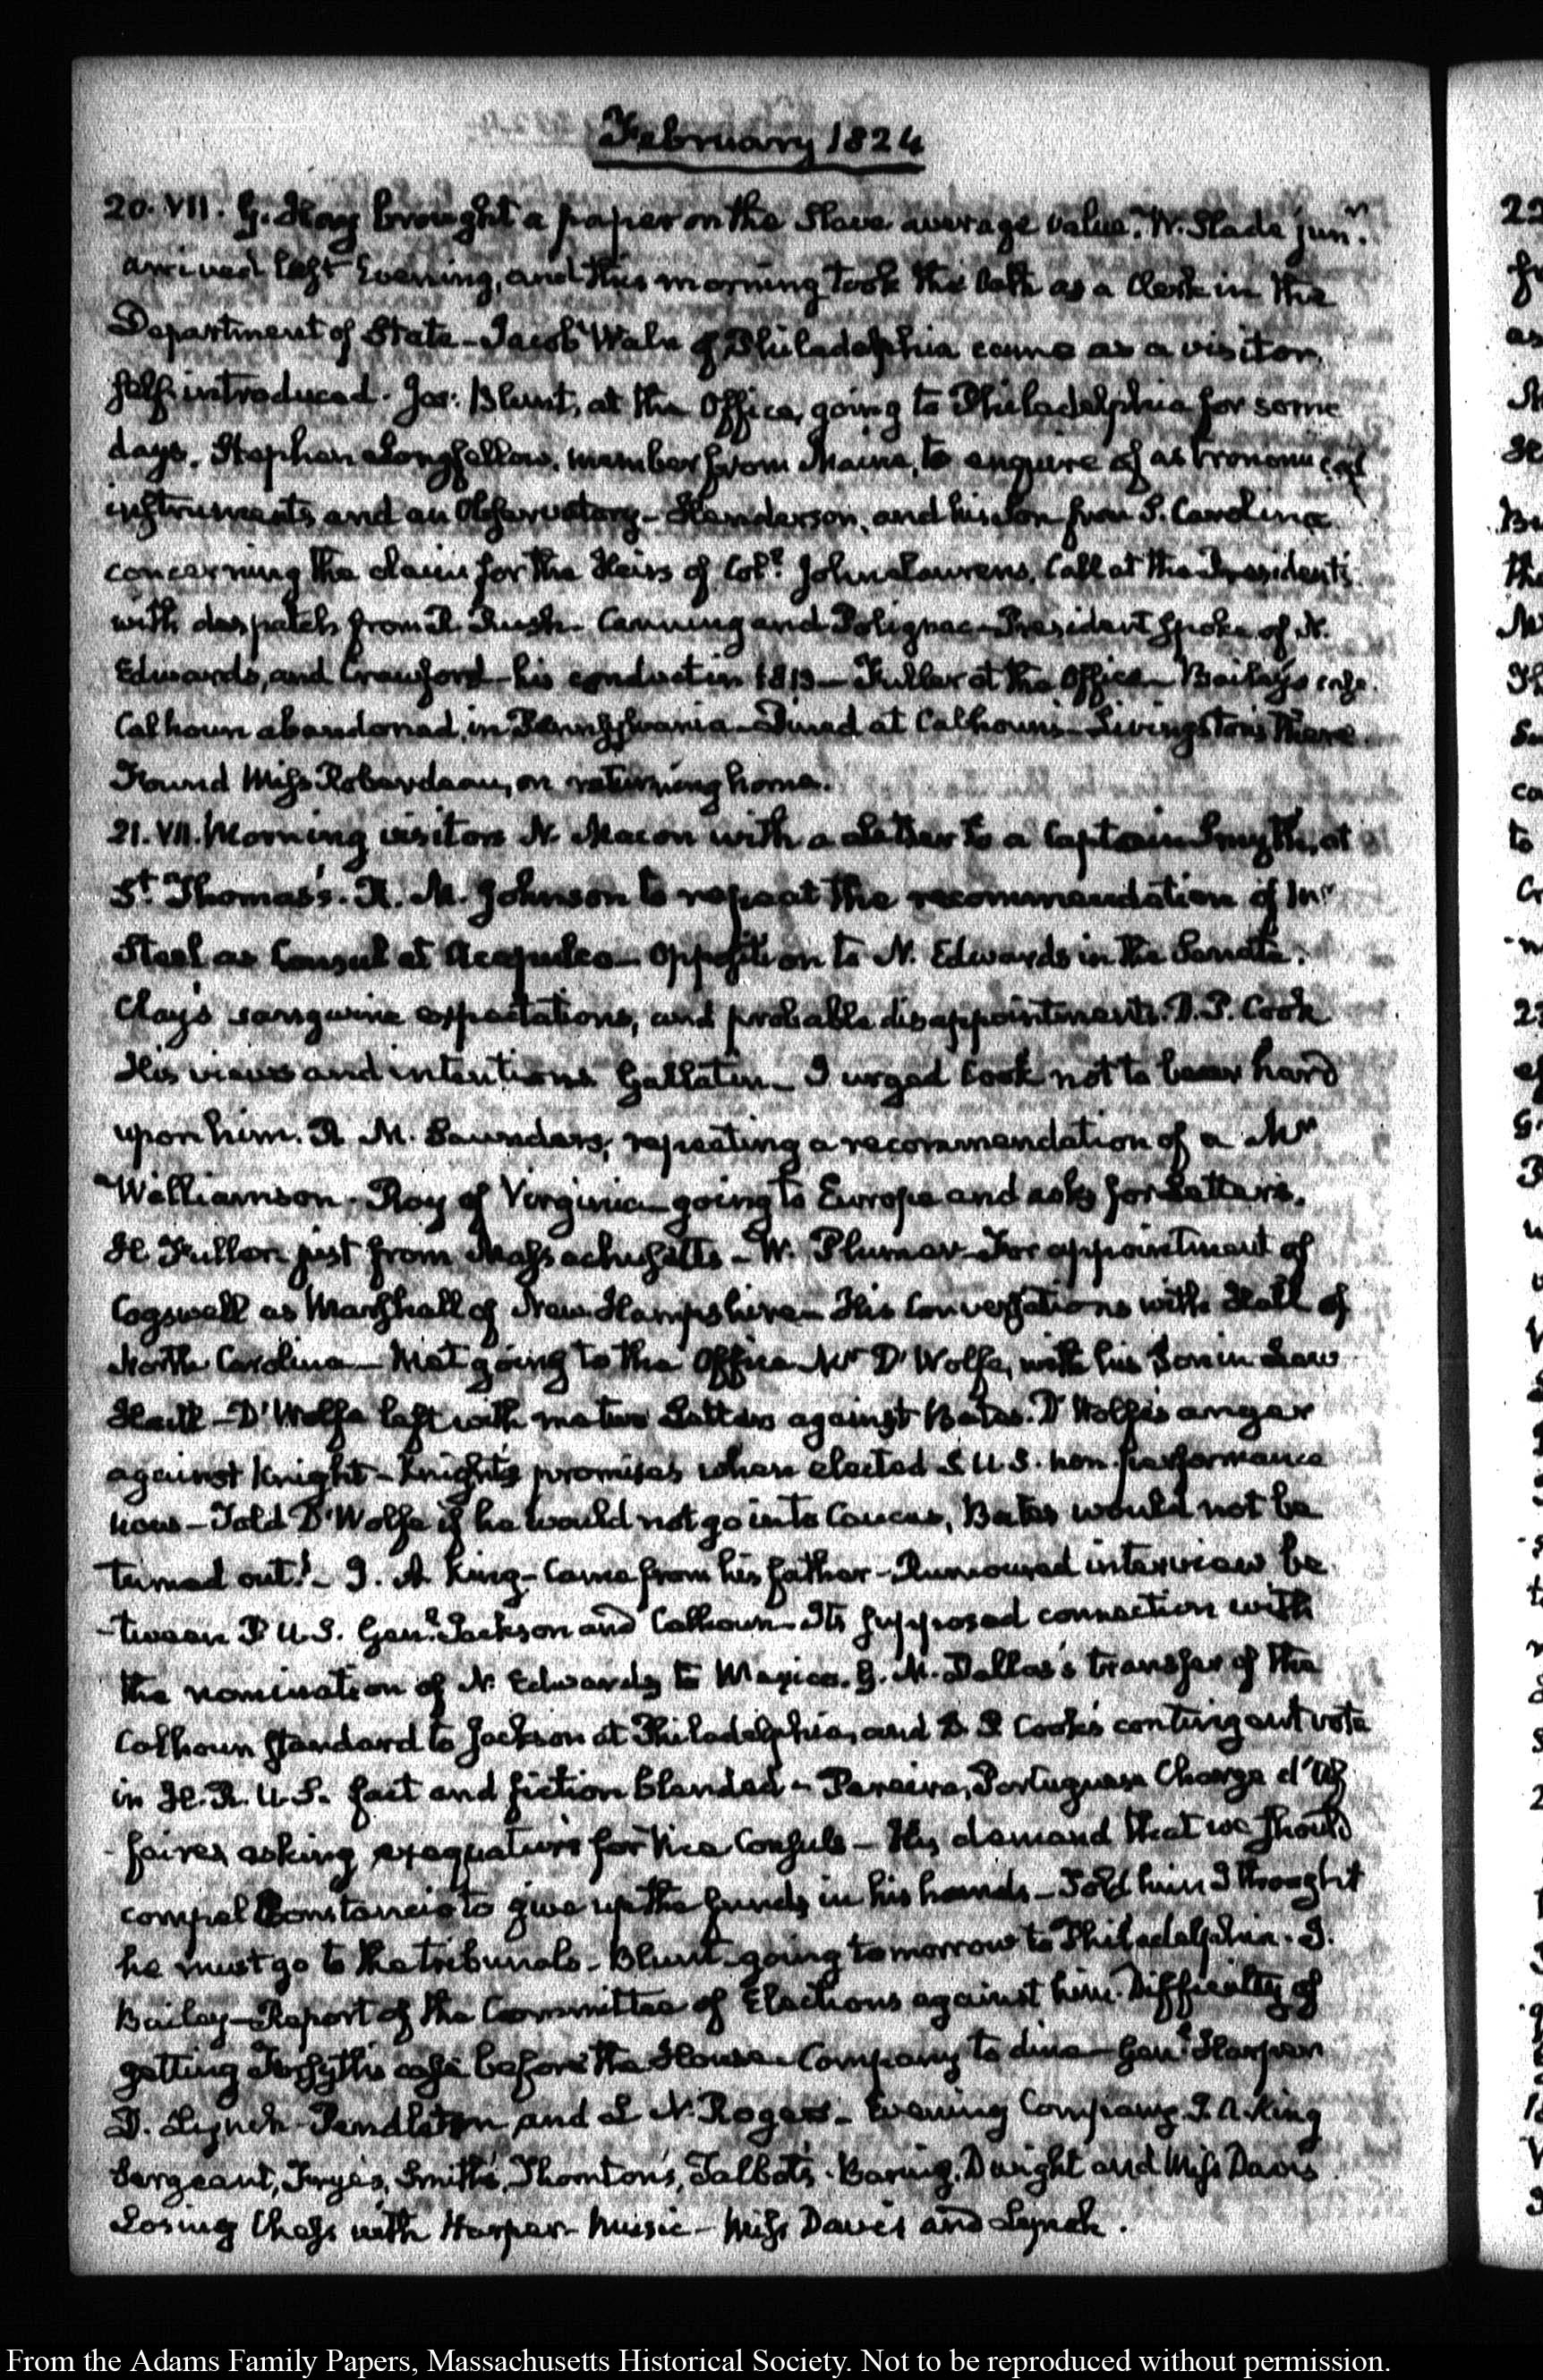 February 1824
20. VII. G. Hay brought a paper on the Slave average value. W. Slade junr.
arrived last Evening, and this morning took the Oath as a Clerk in the
Department of State - Jacob Waln of Philadelphia came as a visitor
self introduced. Jos: Blunt, at the Office, going to Philadelphia for some
days. Stephen Longfellow, member from Maine, to enquire of astronomical
instruments and an Observatory - Henderson, and his Son from S. Carolina
concerning the claim for the Heirs of Coll. John Laurens. Call at the President's
with despatch from R. Rush - Canning and Polignac - President spoke of N.
Edwards, and Crawford his conduct in 1813 - Fuller at the Office - Bailey's case.
Calhoun abandoned in Pennsylvania - Dined at Calhoun's - Livingston's there
Found Miss Roberdeau, on returning home.
21. VII. Morning visitors N. Macon with a Letter to a Captain Smyth, at
St. Thomas's. R. M. Johnson to repeat the recommendation of
Steel as Consul at Acapulco - Opposition to N. Edwards in the Senate.
Clay's sanguine expectations, and probable disappointment. D. P. Cook
His views and intentions Gallatin - I urged Cook not to bear hard
upon him. R. M. Saunders, repeating a recommendation of a Mr
Williamson - Roy of Virginia - going to Europe and asks for Letters.
H Fuller just from Massachusetts - W. Plumer - For appointment of
Cogswell as Marshall of New-Hampshire - His Conversations with Hall of
North Carolina - Met going to the Office Mr D'Wolfe, with his Son in Law
D'Wolfe left with me two Letters against Bates. D'Wolfe's anger
against Knight - Knight's promises when elected S. U.S. non-performance
now - Told D'Wolfe if he would not go into Caucus, Bates would not be
turned out! - J. A King - Came from his father - Rumoured interview be
-tween P. U.S. Genl. Jackson and Calhoun - Its supposed connection with
the nomination of N. Edwards to Mexico. G. M. Dallas's transfer of the
Calhoun standard to Jackson at Philadelphia, and D. P. Cook's contingent vote
in H. R. U.S. fact and fiction blended - Pereira, Portuguese Charge d'Af
-faires asking exequaturs for Vice Consuls - His demand that we should
compel Constancio to give up the funds in his hands - Told him I thought
he must go to the tribunals - Blunt - going tomorrow to Philadelphia. J.
Bailey - Report of the Committee of Elections against him. Difficulty of
getting Forsyth's case before the House - Company to dine - Genl. Harper
D. Lynch - Pendleton and L N. Rogers - Evening Company J. A. King
Sergeant, Frye's, Smith's, Thornton's, Talbot's. Baring. Dwight and Miss Davis
Losing Chess with Harper - Music - Miss Davis and Lynch.
From the Adams Family Papers, Massachusetts Historical Society. Not to be reproduced without permission.